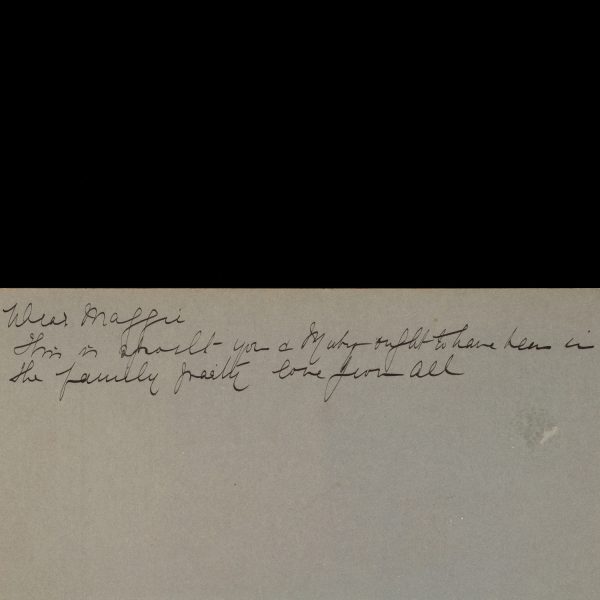 Dear Maggie
This is you & Maty ought to have been in
the familly love from all